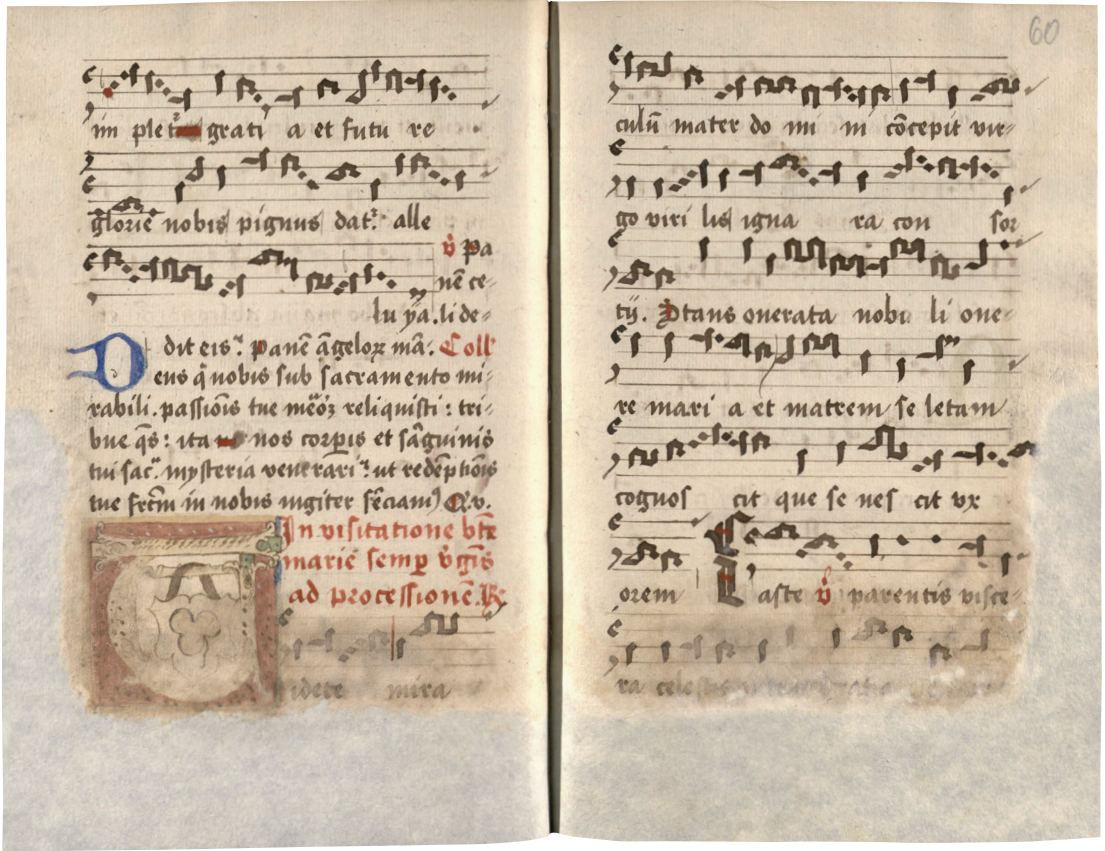 im plet² grati a et futu re
glorie nobis pignus dat². alle
v̊ Pa
nē ce-
lu ya. li de-
dit eis². panē āgeloꝝ mā. Coll
Deus q̄ nobis sub sacramento mi-
rabili. passiōis tue mēoꝛ̄ reliquisti : tri-
bue q̄s : ita nos corpis et sāguinis
tui sac². mysteria venerari². ut redēptiōis
tue frc̄m in nobis iugiter sēciam² Q. v.
In visitatione bt̄e
marie semp v̊gīs
ad processionē. R
idete mira
60
culū mater do mi ni cōcepit vir-
go viri lis igna ra con sor
tij. Stans onerata nobi li one-
re mari a et matrem se letam
cognos cit que se nes cit vx
orem Caste v̊ parentis visce-
ra celestis